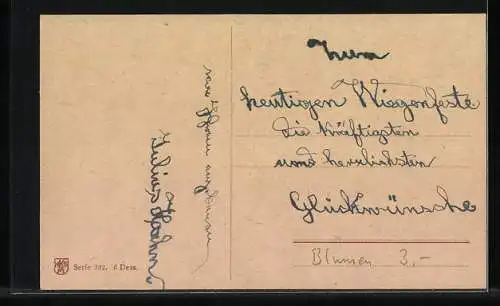 Zum
heutigen Wiegenfeste
die kräftigsten
und herzlichsten
Glückwünsche
von Ihrem
Julius Hahn
Serie 392. 6 Dess.
Blumen 3.-